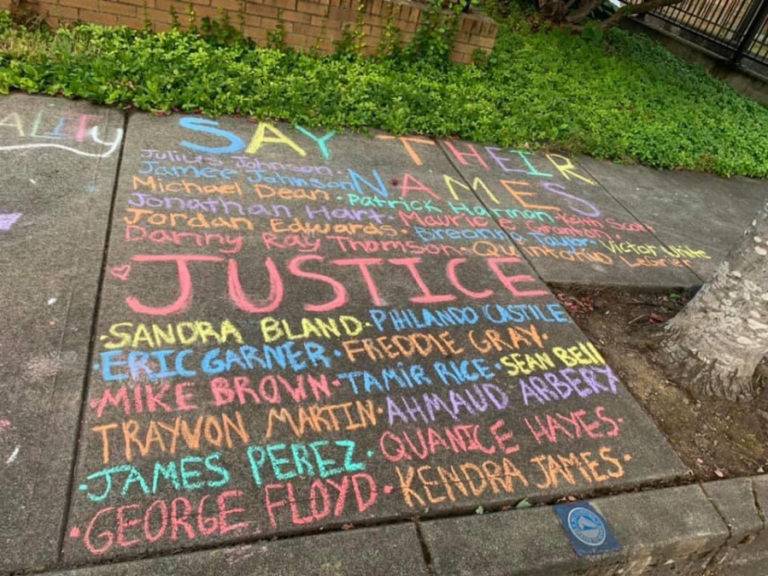 ALITY
SAY THEIR
NAMES
Julius Johnson
Jamee Johnson
Michael Dean · Patrick Harmon · Keith Scott
Jonathan Hart · Maurice Granton
Jordan Edwards · Breonna Taylor · Victor White
Danny Ray Thomson · Quintonio
JUSTICE
·SANDRA BLAND· PHILANDO CASTILE
·ERIC GARNER· FREDDIE GRAY·
·MIKE BROWN· TAMIR RICE· SEAN BELL
TRAYVON MARTIN· AHMAUD ARBERY
·JAMES PEREZ· QUANICE HAYES·
·GEORGE FLOYD· KENDRA JAMES·